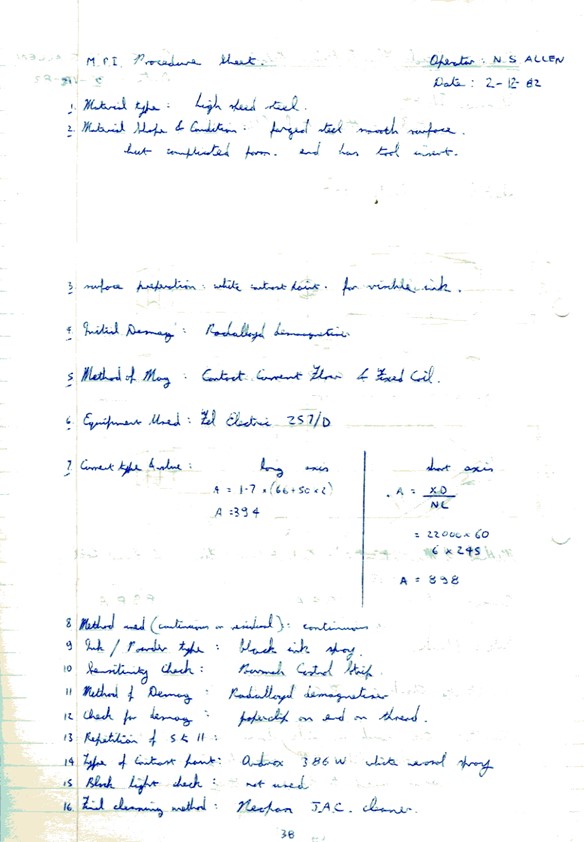 M.P.I. Procedure Sheet. Operator: N.S ALLEN
Date: 2-12-82
1 Material type: high steel.
2 Material Shape & Condition: forged steel smooth surface.
but complicated form. and has tool insert.
3 surface preparation: white contrast paint. for visible ink.
4 Initial Demag: Radalloyd demagnetiser
5 Method of Mag: Contact Current Flow & Fixed Coil.
6 Equipment Used: Fel Electric 257/D
7 Current type & value: long axis short axis
A = 1.7 x (66+50x2) A = XD
A = 394 NL
= 22000 x 60
6 x 245
A = 898
8 Method used (continuous or residual): continuous
9 Ink / Powder type: black ink spray.
10 Sensitivity Check: Burmah Castrol Strip.
11 Method of Demag: Radalloyd demagnetiser
12 Check for demag: paperclip on end on thread.
13 Repetition of 5 & 11:
14 Type of Contrast paint: Ardrox 386W white aerosol spray
15 Black light check: not used
16 Final cleaning method: J.A.C. cleaner.
38